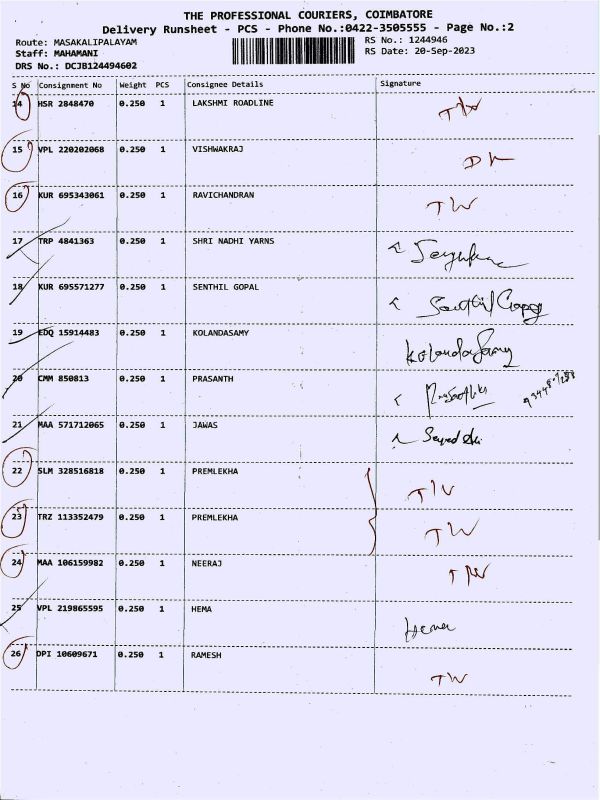 THE PROFESSIONAL COURIERS, COIMBATORE
Delivery Runsheet - PCS - Phone No.:0422-3505555 - Page No.:2
Route: MASAKALIPALAYAM
Staff: MAHAMANI
DRS No.: DCJB124494602
RS No.: 1244946
RS Date: 20-Sep-2023
S No Consignment No Weight PCS Consignee Details Signature
14 HSR 2848470 0.250 1 LAKSHMI ROADLINE
15 VPL 220202068 0.250 1 VISHWAKRAJ
16 KUR 695343061 0.250 1 RAVICHANDRAN TW
17 TRP 4841363 0.250 1 SHRI NADHI YARNS
18 KUR 695571277 0.250 1 SENTHIL GOPAL
19 EDQ 15914483 0.250 1 KOLANDASAMY Kolandasamy
20 CMM 850813 0.250 1 PRASANTH
21 MAA 571712065 0.250 1 JAWAS
22 SLM 328516818 0.250 1 PREMLEKHA TW
23 TRZ 113352479 0.250 1 PREMLEKHA TW
24 MAA 106159982 0.250 1 NEERAJ
25 VPL 219865595 0.250 1 HEMA Hema
26 DPI 10609671 0.250 1 RAMESH TW